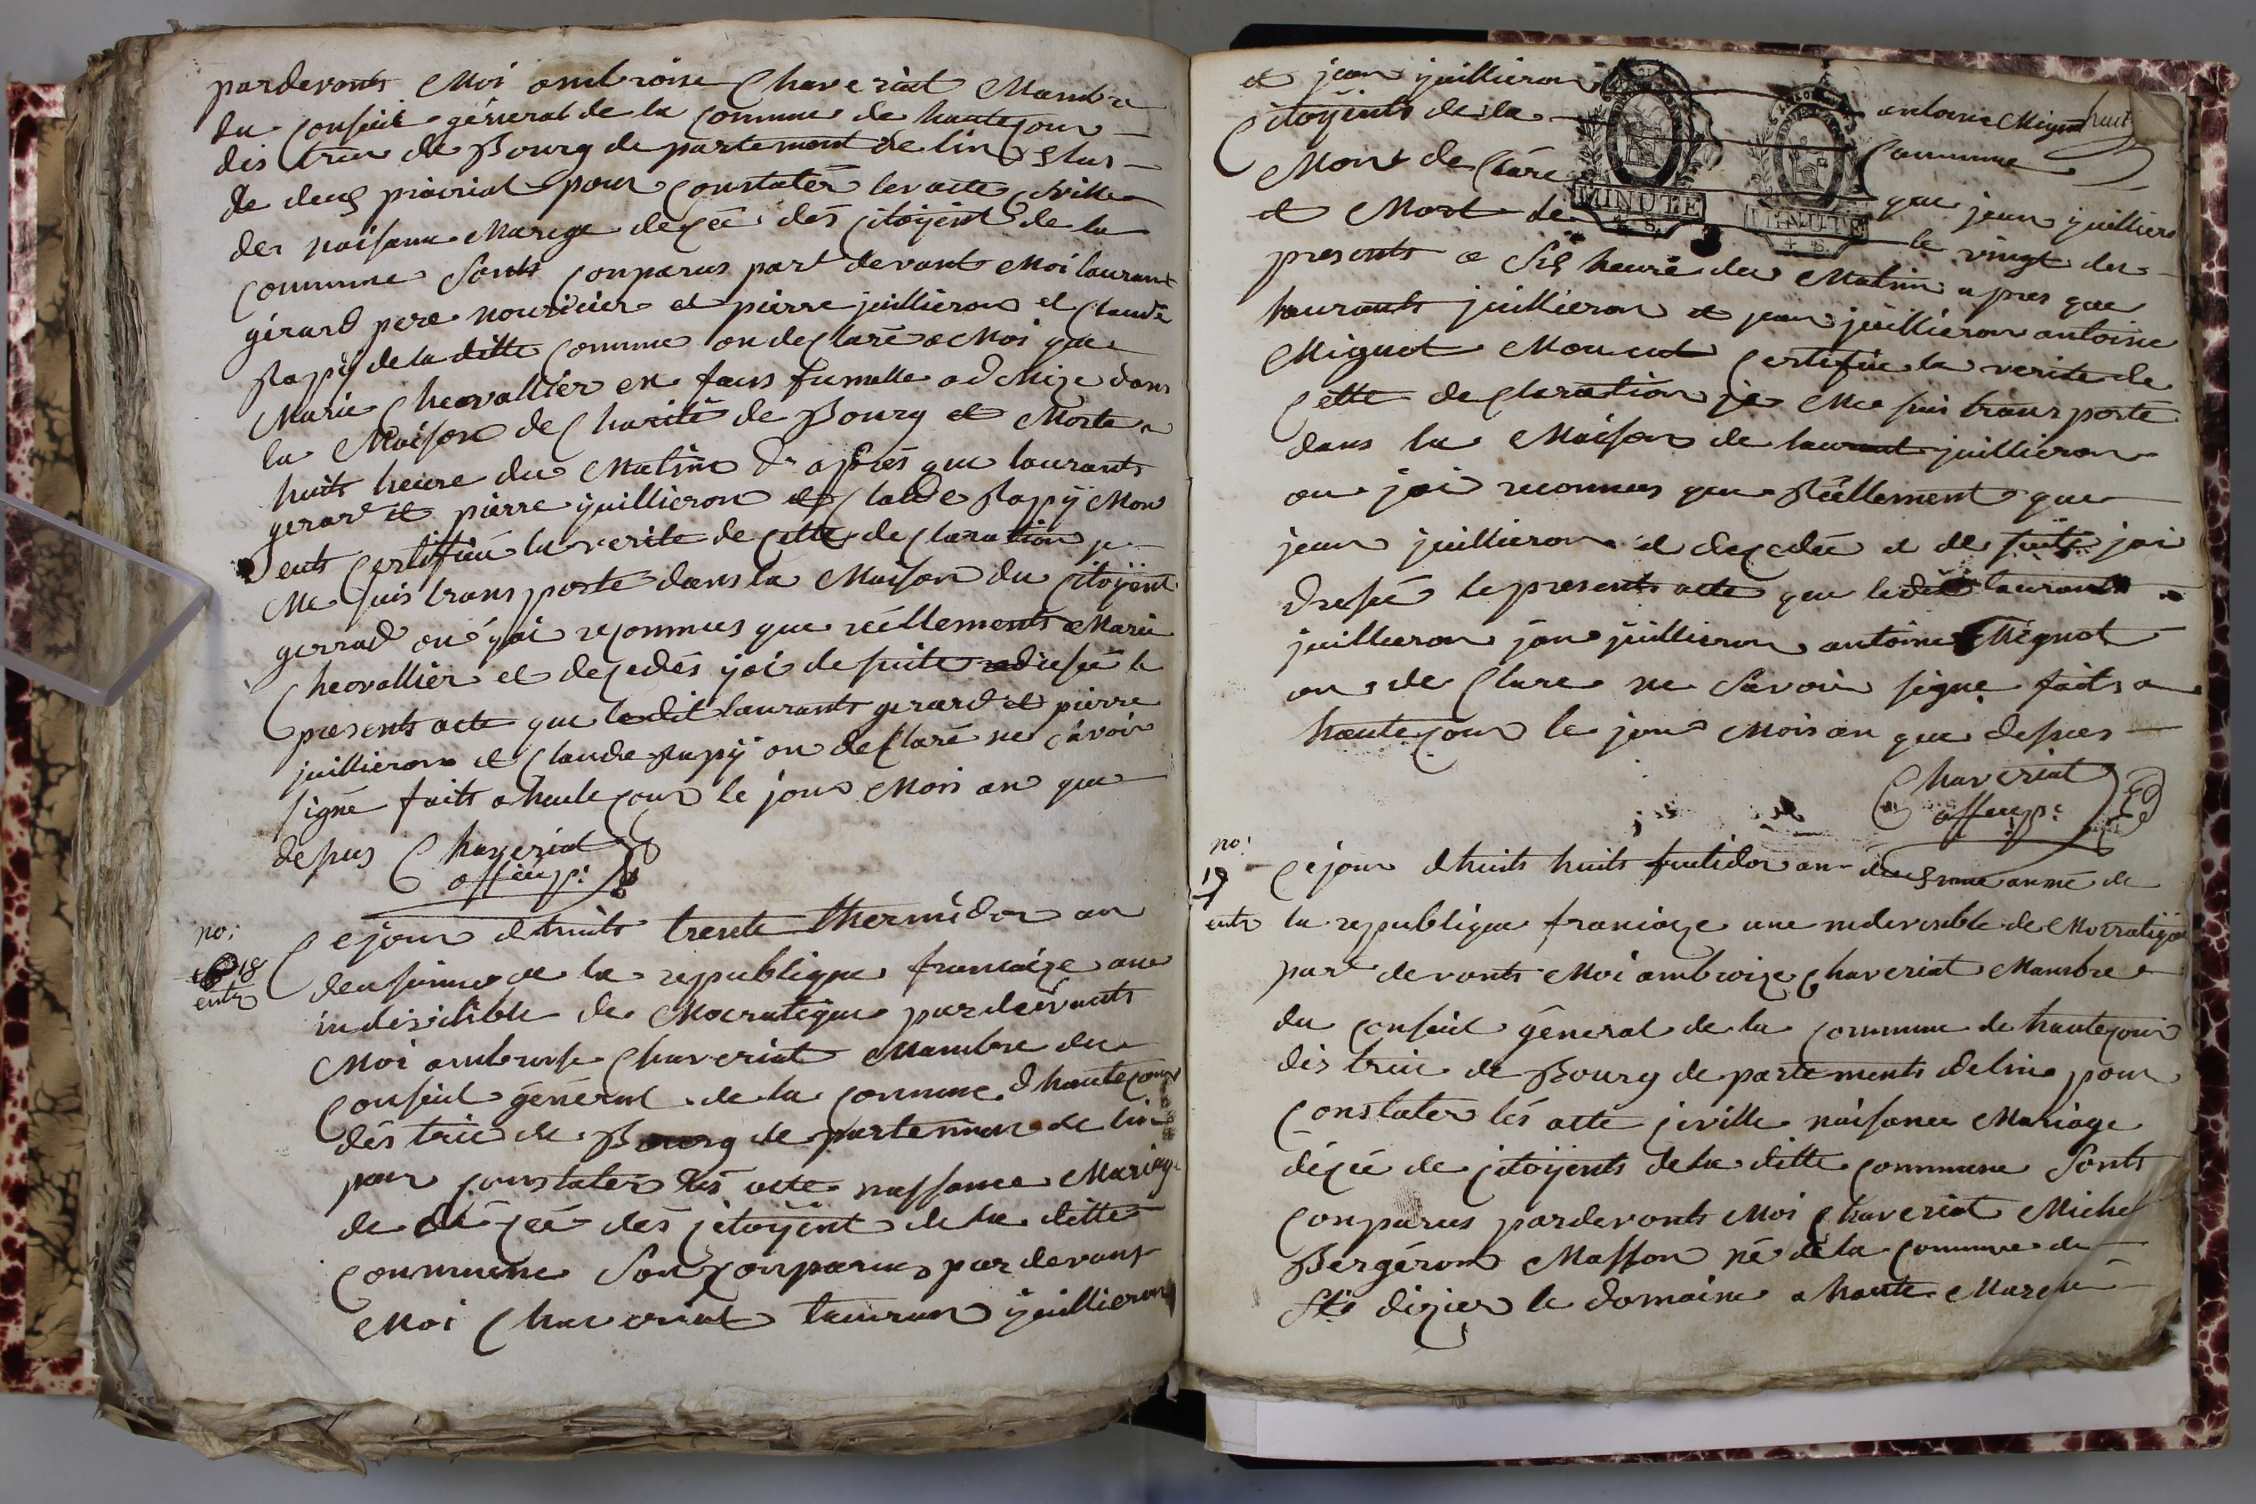 pardevants Moi ambroise Chaveriat Mambre
du Conseil géneral de la Commune de hautecour
distric de Bourg departement de lin Elus
de deux prairial pour Constater les acte Civille
des naisance Mariage decée des Citoÿent de la
Commune Sonts Conparus part devants Moi laurant
gérard pere nouricier et pierre juillieron et Claude
Rapÿ de la ditte Commune on de Claré a Moi que
Marie Cheavallier en fans fumelle ad Mize dans
la Maison de Charité de Bourg et Morte a
huits heure du Matin d'apres que laurants
gerard et pierre juillieron et Claude Rapÿ Mon
ents Certifiée la verite de Cette de Claration je
Me suis trans porté dans la Maison du Citoÿent
gerrad ou j'ai reconnus que réellements Marie
Cheovallier et decedés j'ai de suite dresée le
presents acte que ledit laurants gerard et pierre
juillieron et Claude Rapÿ on de Claré ne Cavoir
signé faits a haute Cour le jour Mois an que
desus Chaveriat
off. cup:
no:
18
entr
Ce jour dhuits trente thermidor an
deusieme de la republique francaize une
indivisible de Mocratique pardevants
Moi ambroise Chaveriat Mambre du
Conseil géneral de la Commune d hautecour
dés tric de Bourg de partemen de lin
pour Constater les acte nassance Mariage
de dé cée dés Citoÿent de la ditte
Commune Son Conparus par devant
Moi Chaveriat lauran juillieron
et jean juillieron antoine Mignot
huit
Citoÿents de la Commune
Mont de Claré que jean juillieron
et Mort le le vingt du
presents a Six heure du Matin a pres que
laurants juillieron et jean juillieron antoine
Mignot Mon ent Certifiée la verite de
Cette de Claration je Me suis trans porté
dans la Maison de laurant juillieron
ou jai reconnus que Réellement que
jean juillieron et decedée et de suite jai
dresée le presents acte que ledit laurant
juillieron jan juillieron antoine Mignot
on de Clare ne Savoir signe faits a
haute Cour le jour Mois an que desus
Chaveriat
off. cup:
no:
19
entr
Ce jour dhuits huits frutidor an deuxieme anné de
la republique francaize une indivisible de Mocratique
part devants Moi ambroize Chaveriat Mambre
du Conseil géneral de la Commune de hautecour
dis tric de Bourg de partements de lin pour
Constater lés acte Civille naisance Mariage
décée de Citoÿents de la ditte Commune Sonts
Conparus pardevonts Moi Chaveriat Michel
Bergéron Masson né de la Commune de
St dizier le domaine a haute Marche
MINUTE
4 S.
MINUTE
4 S.